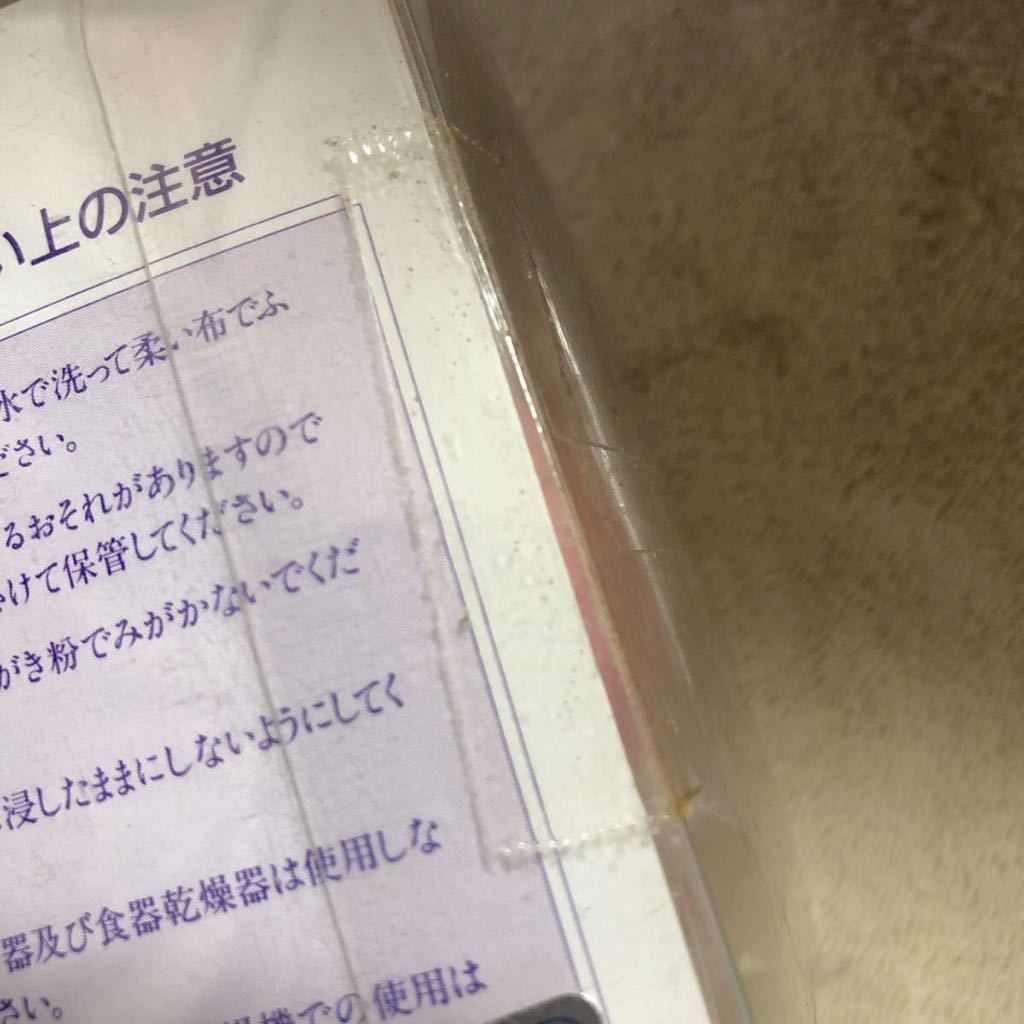 い上の注意
水で洗って柔い布でふ
ださい。
るおそれがありますので
けて保管してください。
がき粉でみがかないでくだ
浸したままにしないようにしてく
器及び食器乾燥器は使用しな
さい。
機での使用は